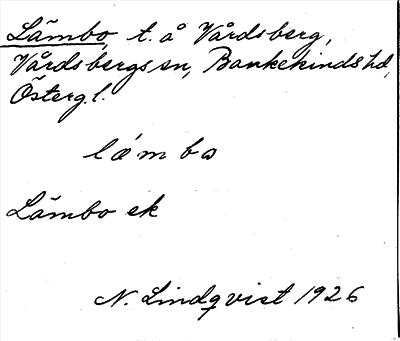 Lämbo, t. å Vårdsberg,
Vårdsbergs sn, Bankekinds hd,
Österg. l.
lǽmbo
Lämbo ek
N. Lindqvist 1926